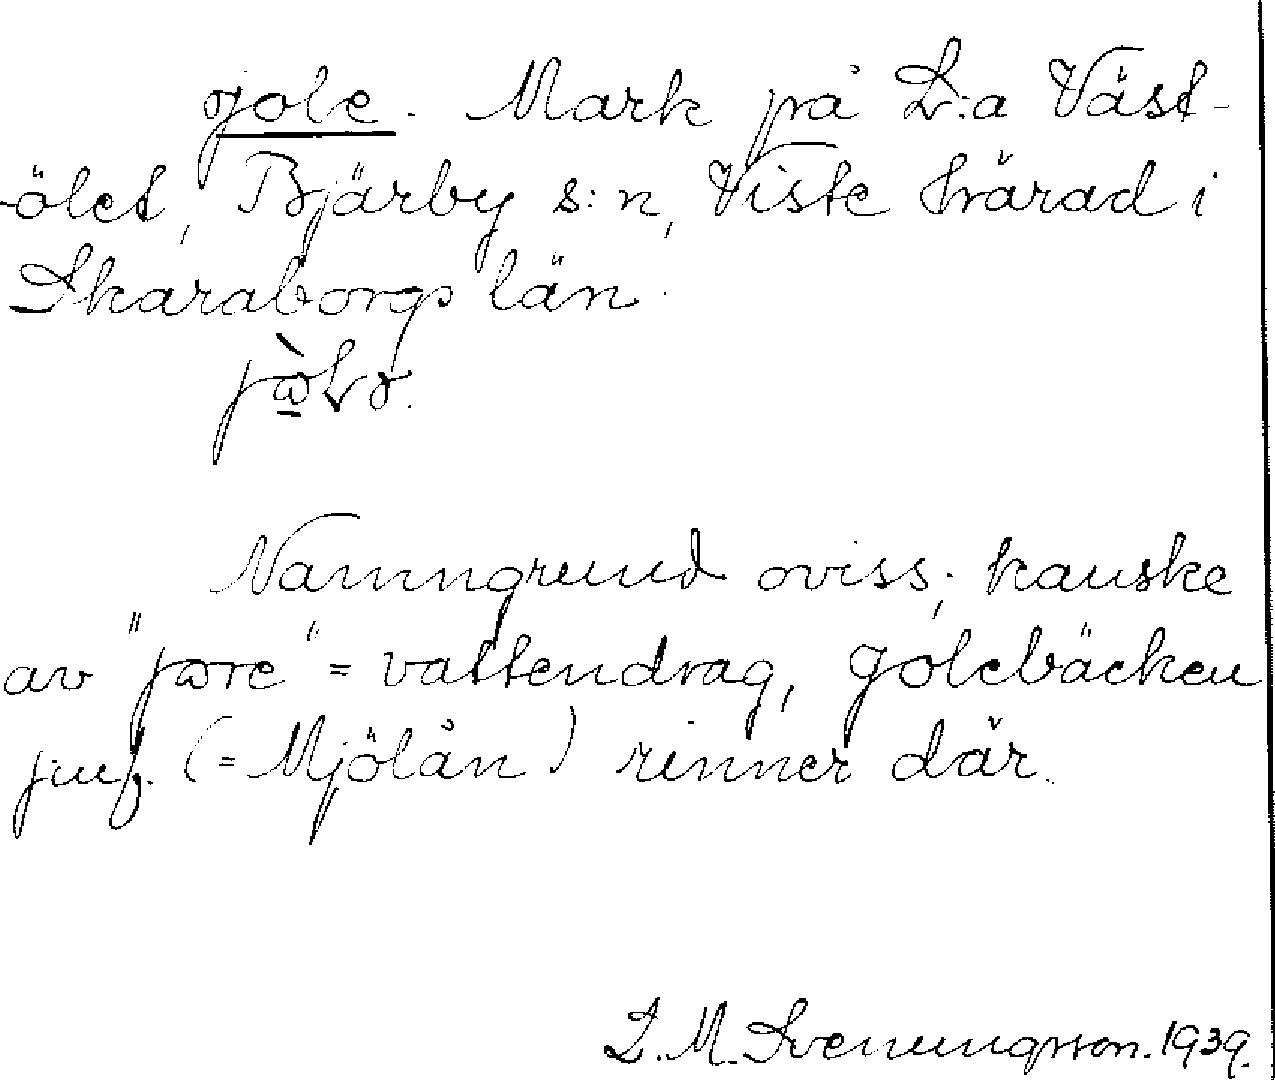 gole. Mark på L:a Väst-
-ölet, Bjärby s:n, Viste härad i
Skaraborgs län.
Namngrund oviss; kanske
av " " = vattendrag, golebäcken
jmf. (= Mjölån) rinner där.
L. M. Svenungsson. 1939.